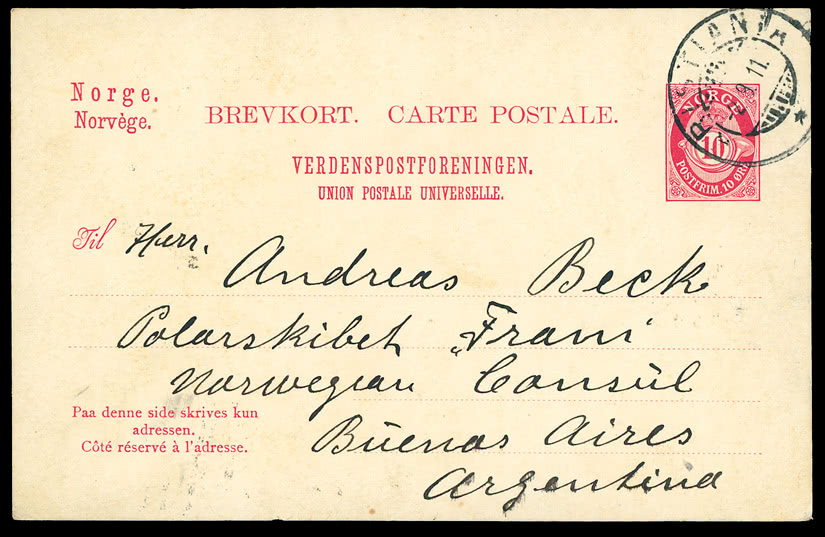 Norge.
Norvège.
BREVKORT. CARTE POSTALE.
VERDENSPOSTFORENINGEN.
UNION POSTALE UNIVERSELLE.
KRISTIANIA
9 11.
NORGE
10
POSTFRIM. 10 ØRE
Til Herr.
Andreas Beck
Polarskibet „Fram“
Norwegian Consul
Buenos Aires
Argentina
Paa denne side skrives kun
adressen.
Côté réservé à l'adresse.